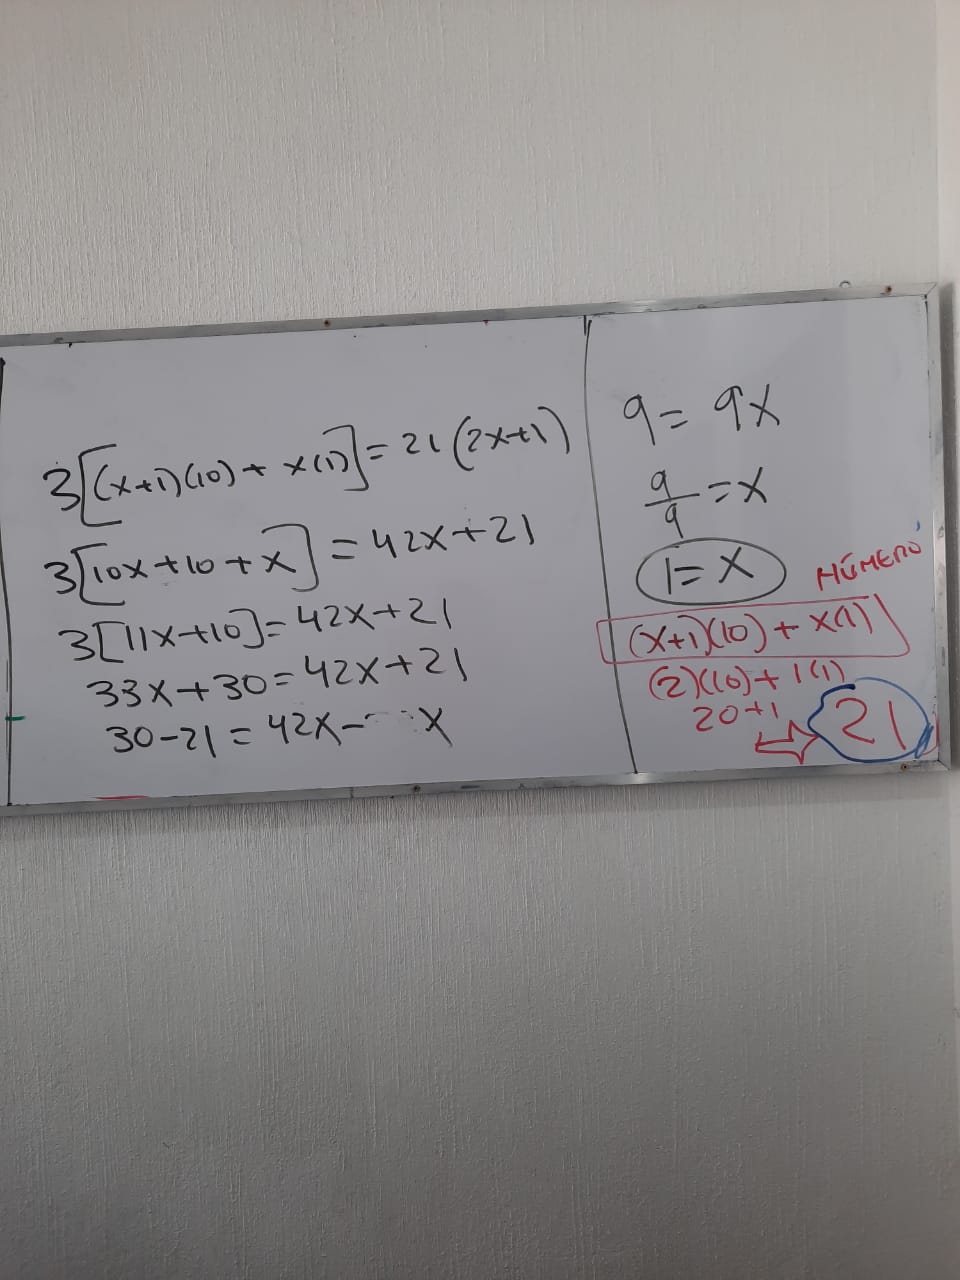 3[(x+1)(10)+ x(1)]= 21 (2x+1)
3[10x+10+x] = 42x+21
3[11x+10]= 42x+21
33x+30=42x+21
30-21 = 42x- x
9= 9x
9/9 =x
1= x
NÚMERO
(x+1)(10) + x(1)
(2)(10)+ 1(1)
20+1
21